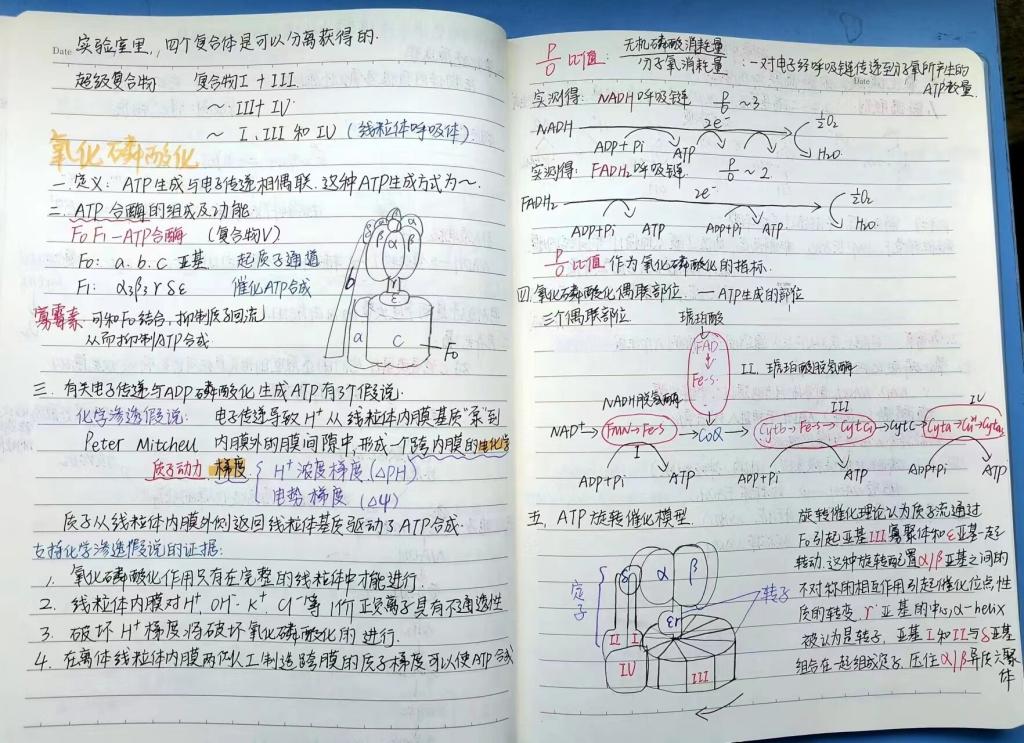 Date
实验室里,四个复合体是可以分离获得的.
超级复合物 复合物I + III
~ III + IV
~ I、III 和 IV (线粒体呼吸体)
氧化磷酸化
一. 定义: ATP生成与电子传递相偶联.这种ATP生成方式为~.
二. ATP合酶的组成及功能
FoF1-ATP合酶 (复合物V)
Fo: a.b.c 亚基 起质子通道
F1: α3β3γδε 催化ATP合成
寡霉素 可和Fo结合,抑制质子回流
从而抑制ATP合成
α α
β α β
b
γ
ε
a c
Fo
三. 有关电子传递与ADP磷酸化生成ATP有3个假说:
化学渗透假说: 电子传导致H⁺从线粒体内膜基质"泵"到
Peter Mitchell 内膜外的膜间隙中,形成一个跨内膜的电化学
质子动力 梯度 { H⁺浓度梯度 (△PH)
电势梯度 (△ψ)
质子从线粒体内膜外侧返回线粒体基质驱动了ATP合成
支持化学渗透假说的证据:
1. 氧化磷酸化作用只有在完整的线粒体中才能进行.
2. 线粒体内膜对H⁺, OH⁻ K⁺、Cl⁻等 离子具有不通透性
3. 破坏H⁺梯度将破坏氧化磷酸化的进行.
4. 在离体线粒体内膜两侧人工制造跨膜的质子梯度可以使ATP合成
P/O 比值: 无机磷酸消耗量/分子氧消耗量 : 一对电子经呼吸链传递至分子氧所产生的
ATP数量.
Date
实测得: NADH呼吸链 P/O ~3
NADH 2e⁻ ½O₂
ADP+Pi ATP H₂O.
实测得: FADH₂呼吸链 P/O ~2
FADH₂ 2e⁻ ½O₂
ADP+Pi ATP ADP+Pi ATP H₂O.
P/O 比值 作为氧化磷酸化的指标.
四. 氧化磷酸化偶联部位 —ATP生成的部位
三个偶联部位 琥珀酸
FAD
Fe-S
II. 琥珀酸脱氢酶
NADH脱氢酶 III IV
NAD⁺→FMN→Fe-S→CoQ→Cytb→Fe-S→Cytc₁→cytc→Cyta→Cu²⁺→Cyta₃
I
ADP+Pi ATP ADP+Pi ATP ADP+Pi ATP
五. ATP旋转催化模型.
旋转催化理论认为质子流通过
Fo引起亚基III寡聚体和ε亚基一起
转动.这种旋转配置α/β亚基之间的
不对称的相互作用引起催化位点性
质的转变. γ 亚基的中心α-helix
被认为是转子,亚基I和II与δ亚基
组合在一起组成定子.压住α/β异质六聚
体
定子
δ α β
εγ
转子
II I
IV III